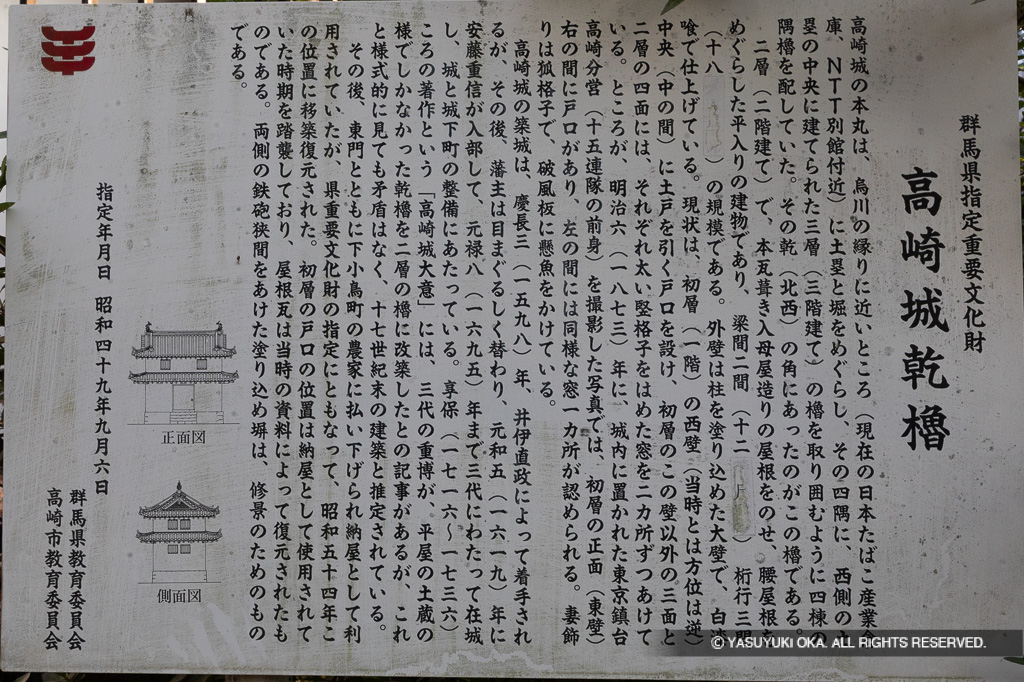 群馬県指定重要文化財
高崎城乾櫓
高崎城の本丸は、烏川の縁りに近いところ（現在の日本たばこ産業倉
庫、ＮＴＴ別館付近）に土塁と堀をめぐらし、その四隅に、西側の土
塁の中央に建てられた三層（三階建て）の櫓を取り囲むように四棟の
隅櫓を配していた。その乾（北西）の角にあったのがこの櫓である。
二層（二階建て）で、本瓦葺き入母屋造りの屋根をのせ、腰屋根を
めぐらした平入りの建物であり、梁間二間（十二尺）桁行三間
（十八）の規模である。外壁は柱を塗り込めた大壁で、白漆
喰で仕上げている。現状は、初層（一階）の西壁（当時とは方位は逆）
中央（中の間）に土戸を引く戸口を設け、初層のこの壁以外の三面と
二層の四面には、それぞれ太い竪格子をはめた窓を二カ所ずつあけて
いる。ところが、明治六（一八七三）年に、城内に置かれた東京鎮台
高崎分営（十五連隊の前身）を撮影した写真では、初層の正面（東壁）
右の間に戸口があり、左の間には同様な窓一カ所が認められる。妻飾
りは狐格子で、破風板に懸魚をかけている。
高崎城の築城は、慶長三（一五九八）年、井伊直政によって着手され
るが、その後、藩主は目まぐるしく替わり、元和五（一六一九）年に
安藤重信が入部して、元禄八（一六九五）年まで三代にわたって在城
し、城と城下町の整備にあたっている。享保（一七一六〜一七三六）
ころの著作という「高崎城大意」には、三代の重博が、平屋の土蔵の
様でしかなかった乾櫓を二層の櫓に改築したとの記事があるが、これ
と様式的に見ても矛盾はなく、十七世紀末の建築と推定されている。
その後、東門とともに下小鳥町の農家に払い下げられ納屋として利
用されていたが、県重要文化財の指定にともなって、昭和五十四年こ
の位置に移築復元された。初層の戸口の位置は納屋として使用されて
いた時期を踏襲しており、屋根瓦は当時の資料によって復元されたも
のである。両側の鉄砲狭間をあけた塗り込め塀は、修景のためのもの
である。
正面図
側面図
指定年月日　昭和四十九年九月六日
群馬県教育委員会
高崎市教育委員会
© YASUYUKI OKA. ALL RIGHTS RESERVED.